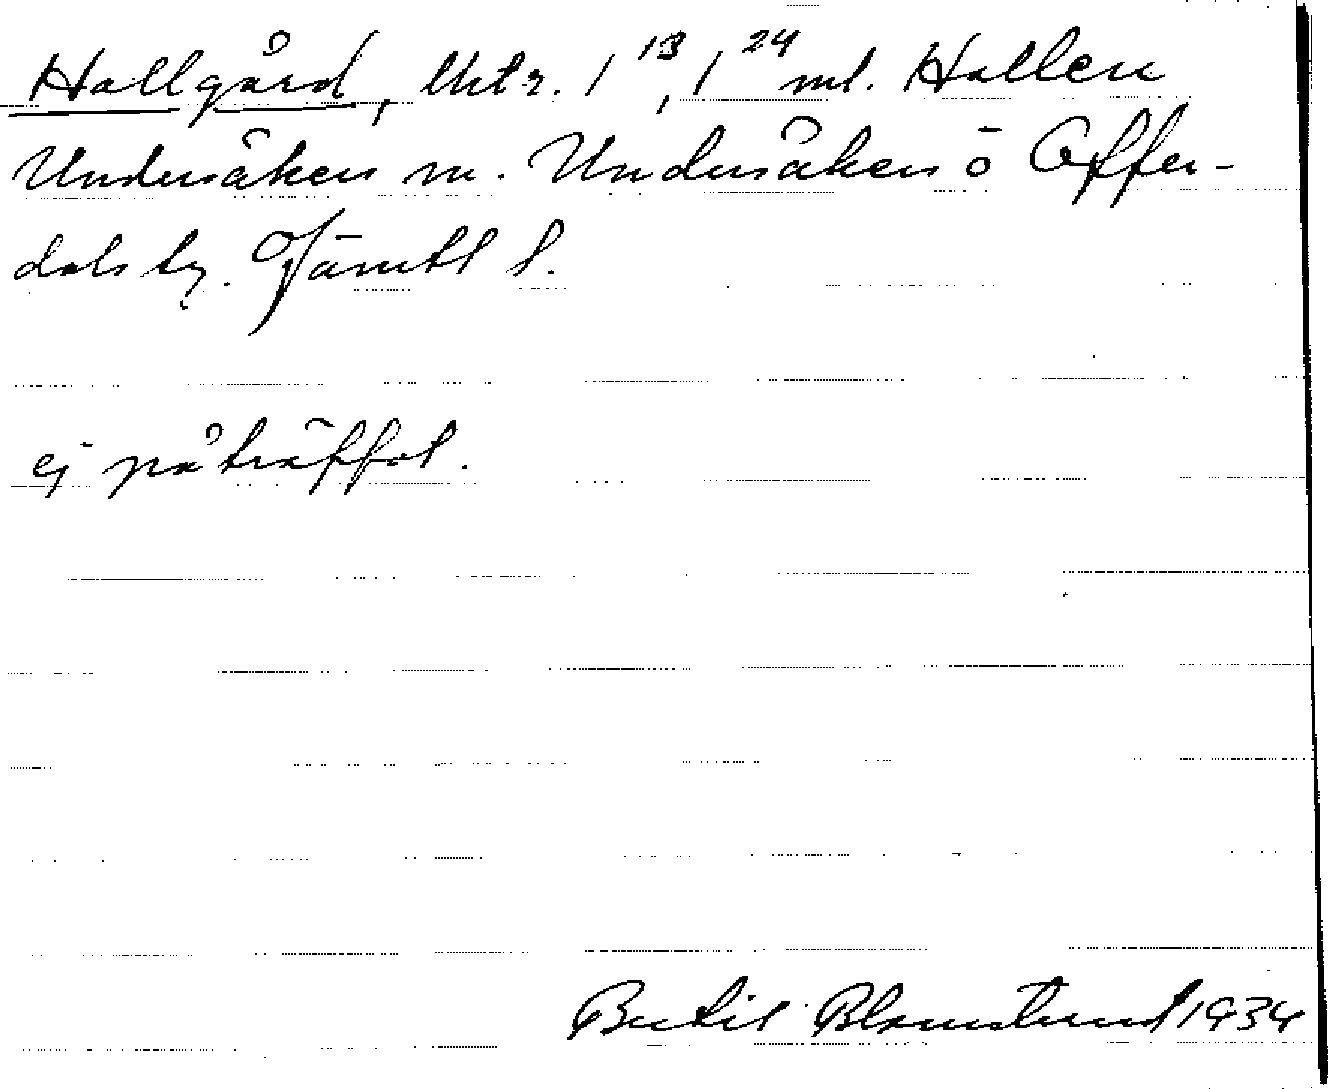 Hallgård, lhtr. 1¹³, 1²⁴ ml. Hallen
Undersåkers m. Undersåkers o Offer-
dals tg. Jämtl l.
ej påträffat.
Bertil Blomstrand 1934